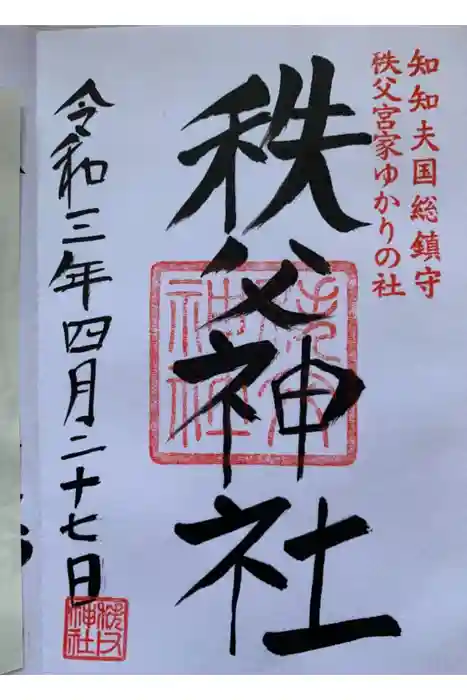 知知夫国総鎮守
秩父宮家ゆかりの社
秩父神社
秩父神社
令和三年四月二十七日
秩父神社